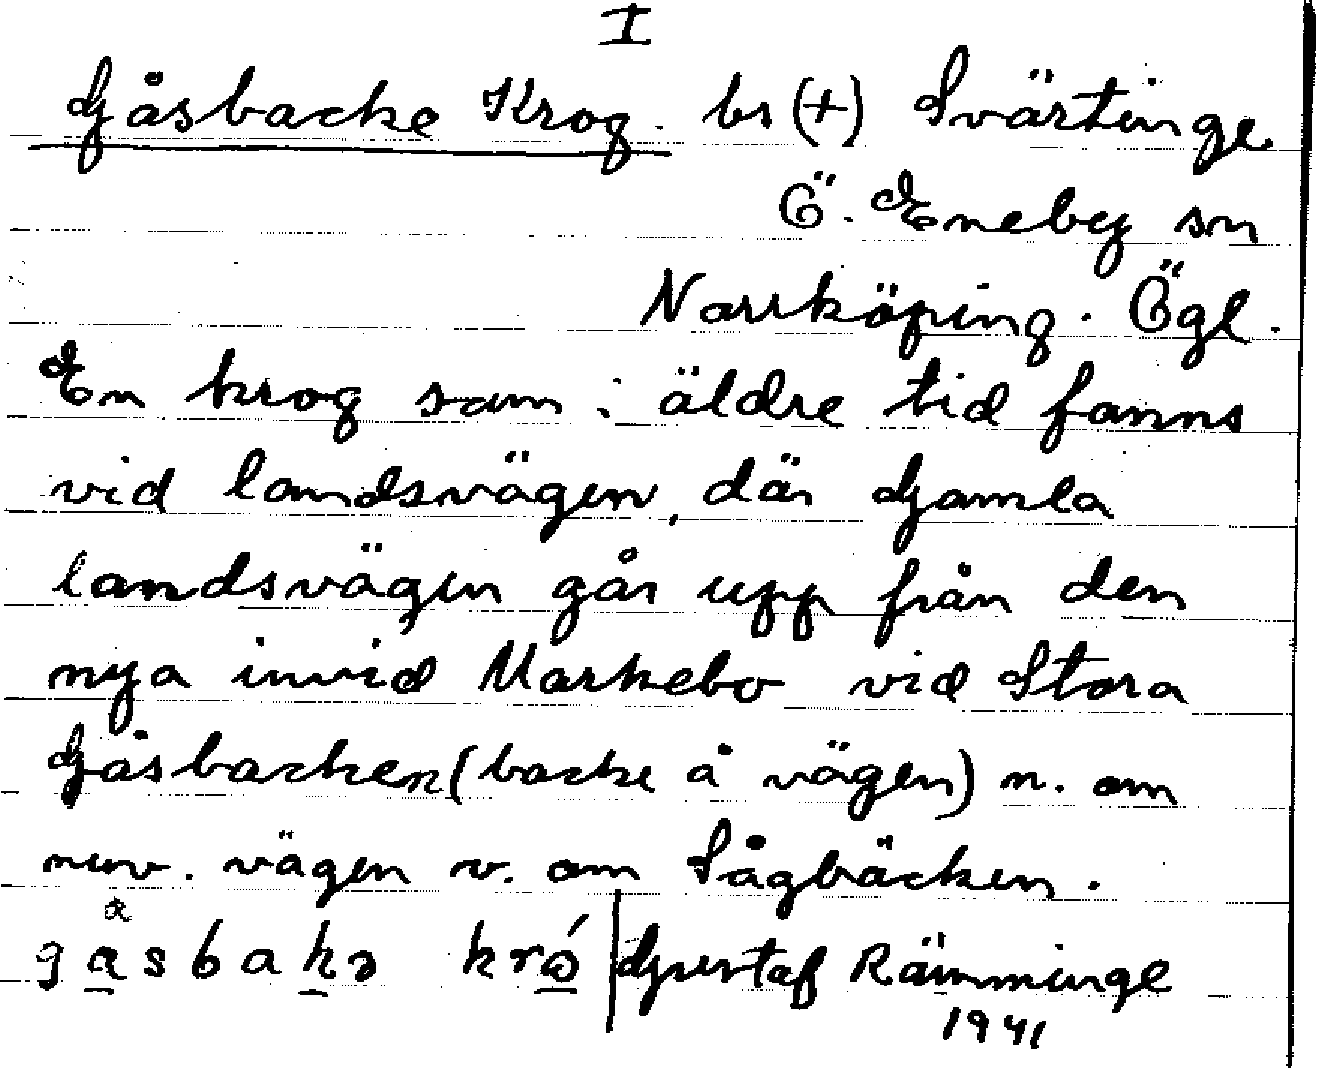 I
Gåsbacke Krog. bs (+) Svärtinge
Ö. Eneby sn
Norrköping. Ögl.
En krog som i äldre tid fanns
vid landsvägen, där Gamla
landsvägen går upp från den
nya invid Markebo vid Stora
Gåsbacken (backe å vägen) n. om
nuv. vägen v. om Sågbäcken.
Gustaf Rämminge
1941